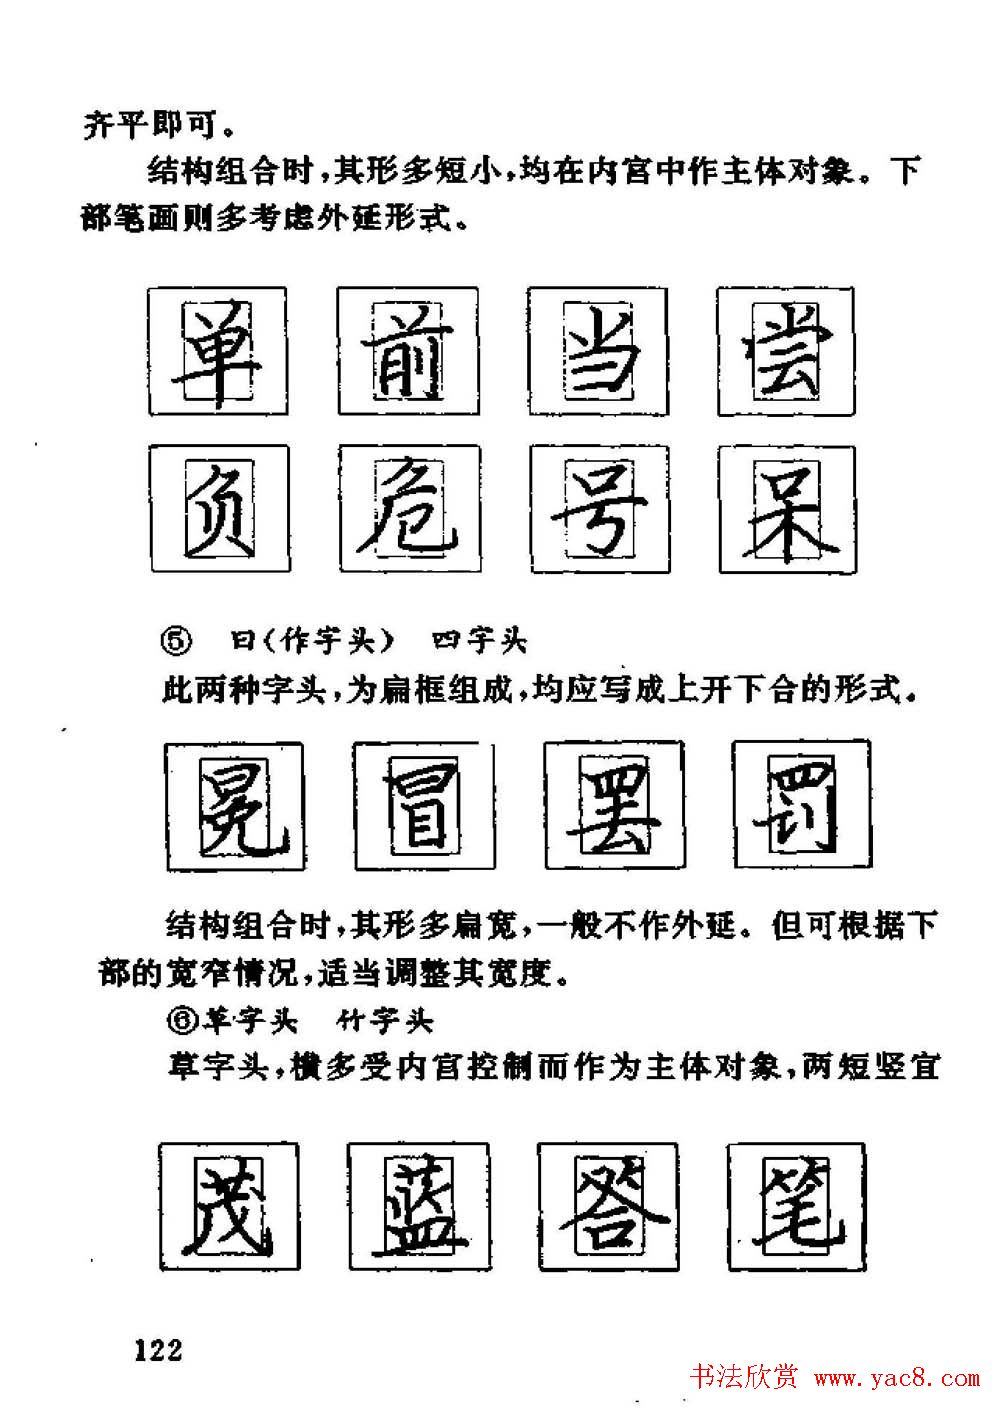 齐平即可。
结构组合时，其形多短小，均在内宫中作主体对象。下
部笔画则多考虑外延形式。
单 前 当 尝
负 危 号 呆
⑤ 曰（作字头） 四字头
此两种字头，为扁框组成，均应写成上开下合的形式。
冕 冒 罢 罚
结构组合时，其形多扁宽，一般不作外延。但可根据下
部的宽窄情况，适当调整其宽度。
⑥草字头 竹字头
草字头，横多受内宫控制而作为主体对象，两短竖宜
茂 蓝 答 笔
122
书法欣赏 www.yac8.com